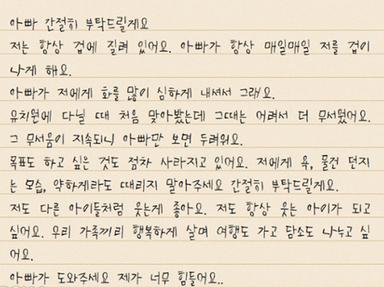 아빠 간절히 부탁드릴게요
저는 항상 겁에 질려 있어요. 아빠가 항상 매일매일 저를 겁이
나게 해요.
아빠가 저에게 화를 많이 심하게 내셔서 그래요.
유치원에 다닐 때 처음 맞아봤는데 그때는 어려서 더 무서웠어요.
그 무서움이 지속되니 아빠만 보면 두려워요.
목표도 하고 싶은 것도 점차 사라지고 있어요. 저에게 욕, 물건 던지
는 모습, 약하게라도 때리지 말아주세요 간절히 부탁드릴게요.
저도 다른 아이들처럼 웃는게 좋아요. 저도 항상 웃는 아이가 되고
싶어요. 우리 가족끼리 행복하게 살며 여행도 가고 담소도 나누고 싶
어요.
아빠가 도와주세요 제가 너무 힘들어요..